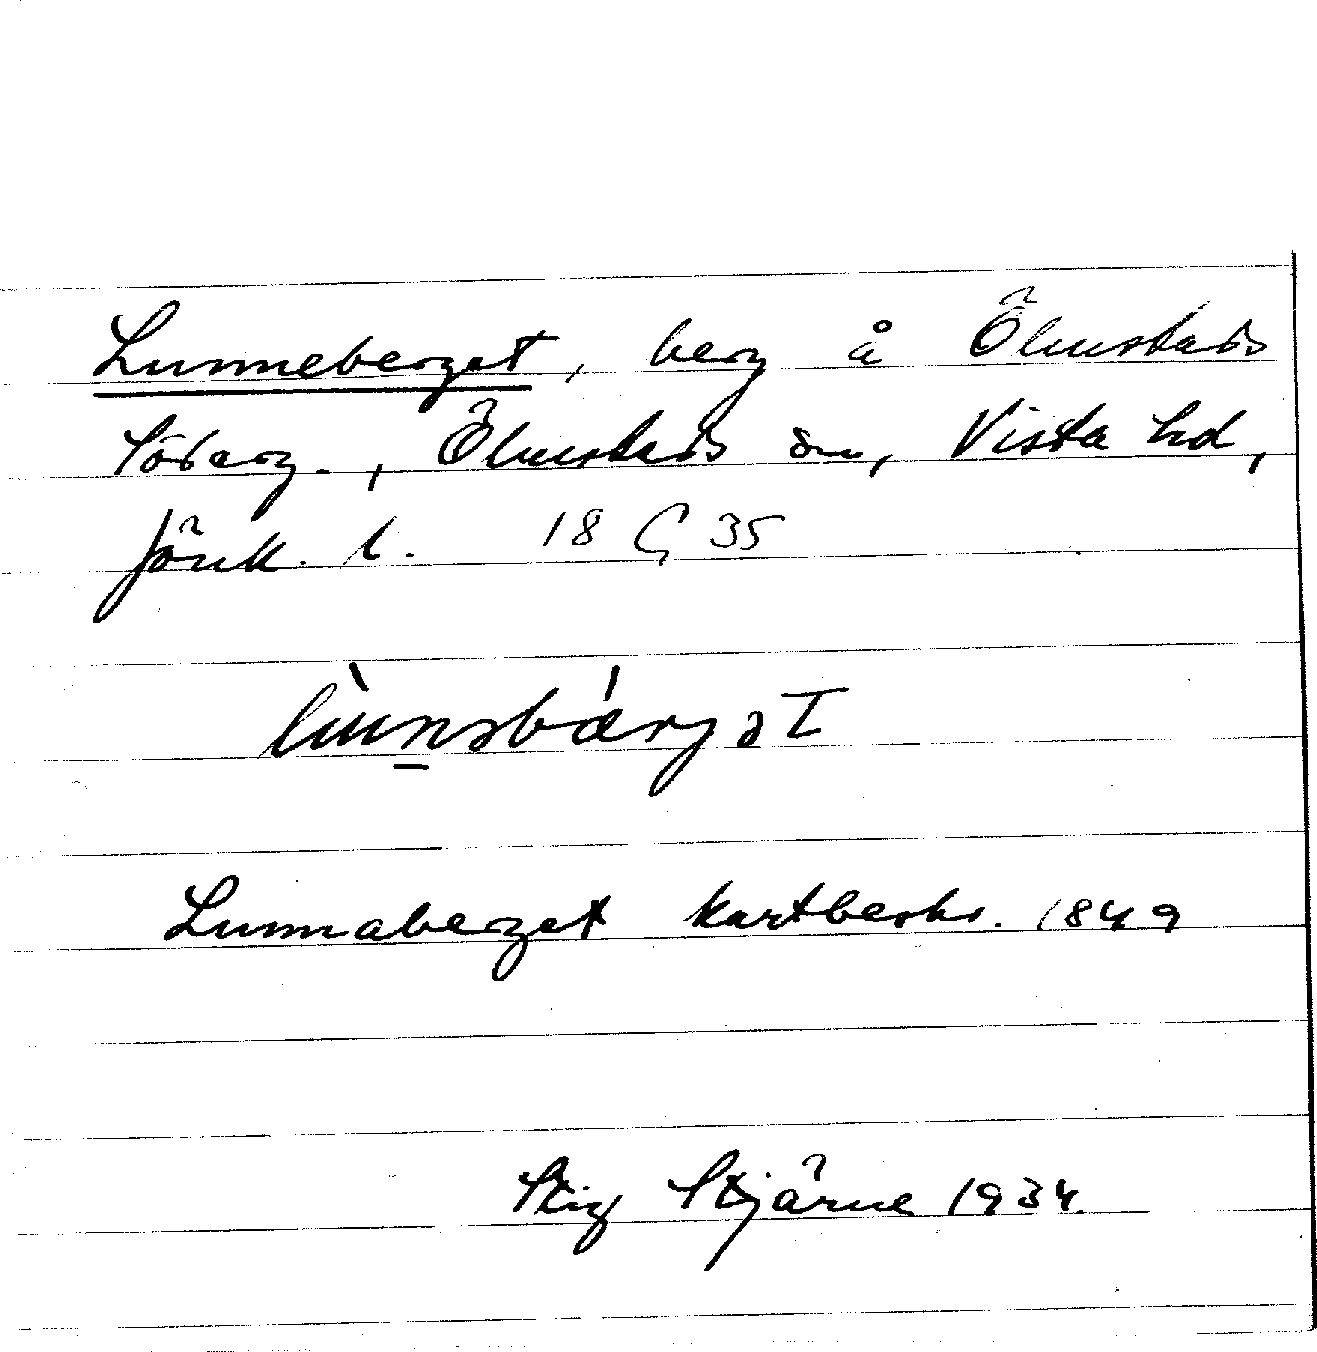 Lunneberget, berg å Ölmstads
Söberg., Ölmstads sn, Vista hd,
Jönk. l. 18 G 35
Lunnaberget kartbeskr. 1849
Stig Stjärne 1934.